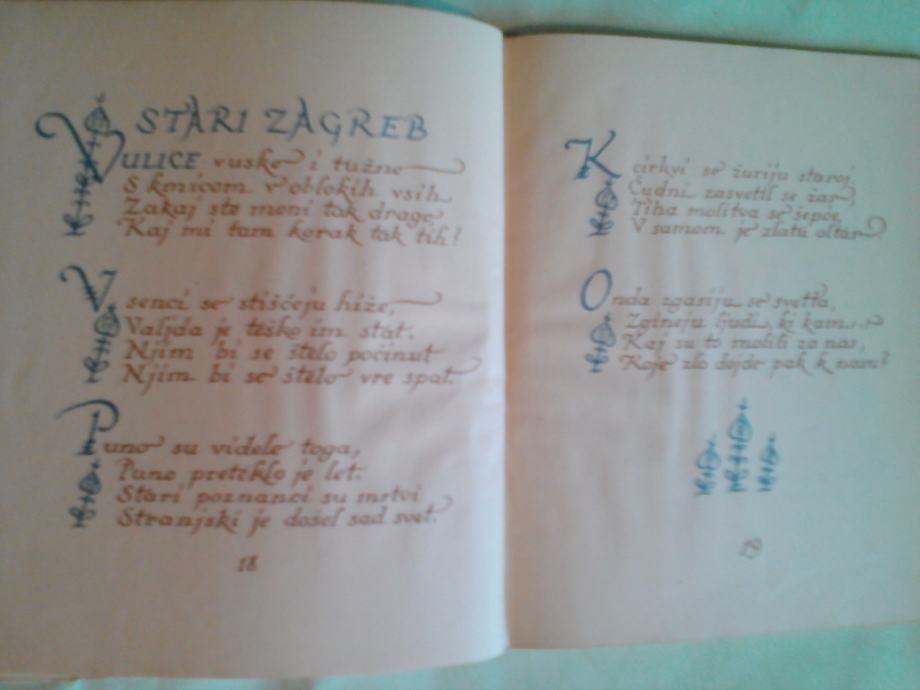 STARI ZAGREB
VULICE vuske i tužne
S kmicom v oblokih vsih
Zakaj ste meni tak drage
Kaj mi tam korak tak tih?
V senci se stišćeju hiže,
Valjda je teško im stat.
Njim bi se štelo počinut
Njim bi se štelo vre spat.
Puno su videle toga,
Puno preteklo je let.
Stari poznanci su mrtvi
Stranjski je došel sad svet.
18
K cirkvi se žuriju staroj,
Čudni zasvetil se žar,
Tiha molitva se šepće,
V samom je zlatu oltar.
Onda zgasiju se svetla,
Zgineju ljudi, ki kam...
Kaj su to molili za nas,
Koje zlo dojde pak k nam?
19